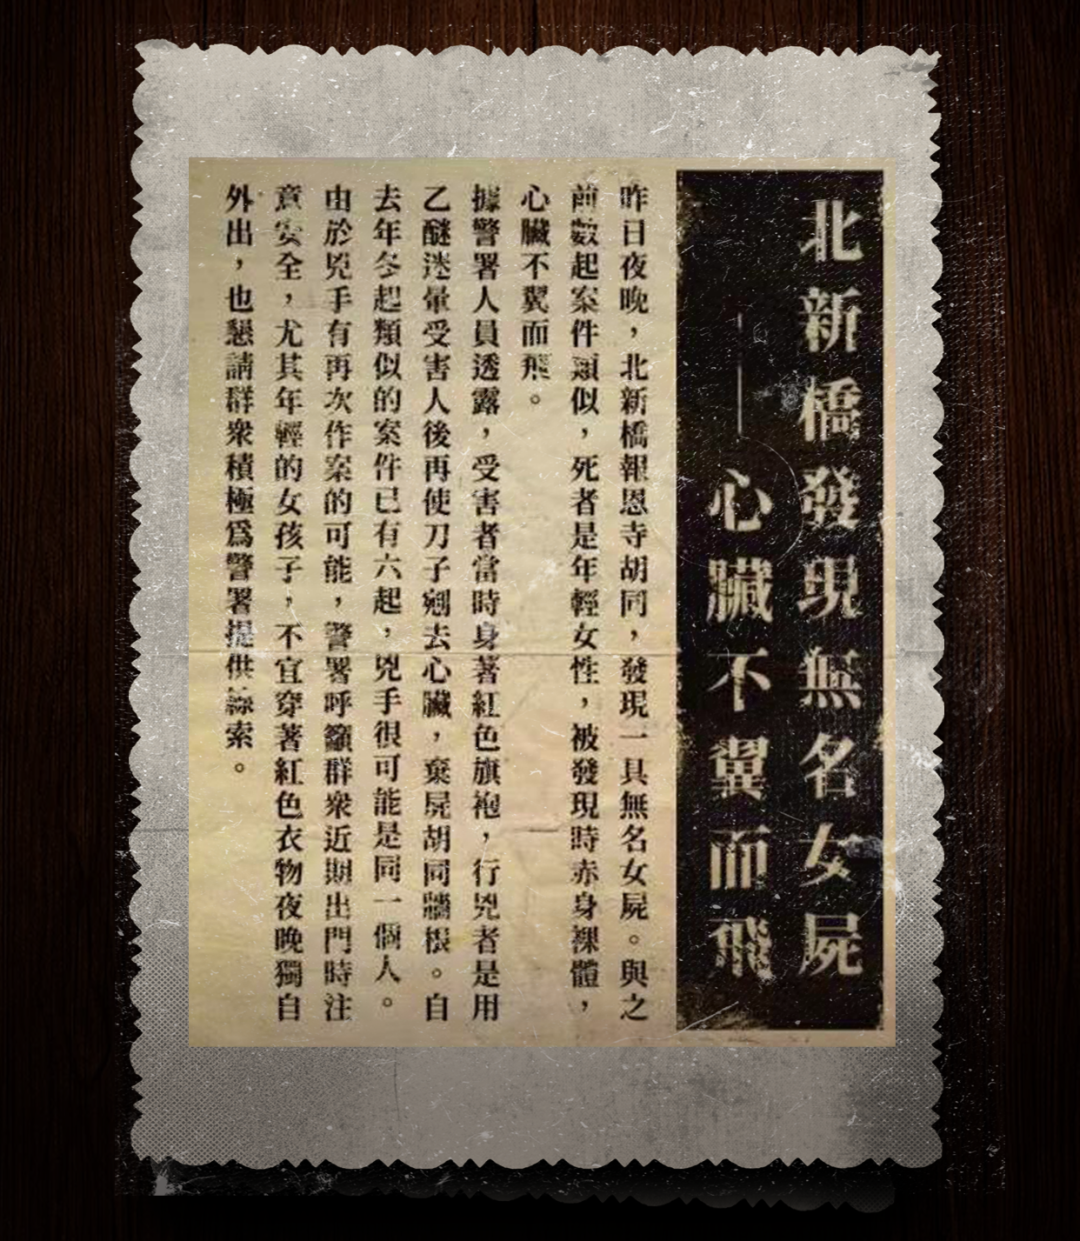 北新橋發現無名女屍
——心臟不翼而飛
昨日夜晚，北新橋報恩寺胡同，發現一具無名女屍。與之
前數起案件類似，死者是年輕女性，被發現時赤身裸體，
心臟不翼而飛。
據警署人員透露，受害者當時身著紅色旗袍，行兇者是用
乙醚迷暈受害人後再使刀子剜去心臟，棄屍胡同牆根。自
去年冬起類似的案件已有六起，兇手很可能是同一個人。
由於兇手有再次作案的可能，警署呼籲群衆近期出門時注
意安全，尤其年輕的女孩子，不宜穿著紅色衣物夜晚獨自
外出，也懇請群衆積極爲警署提供線索。